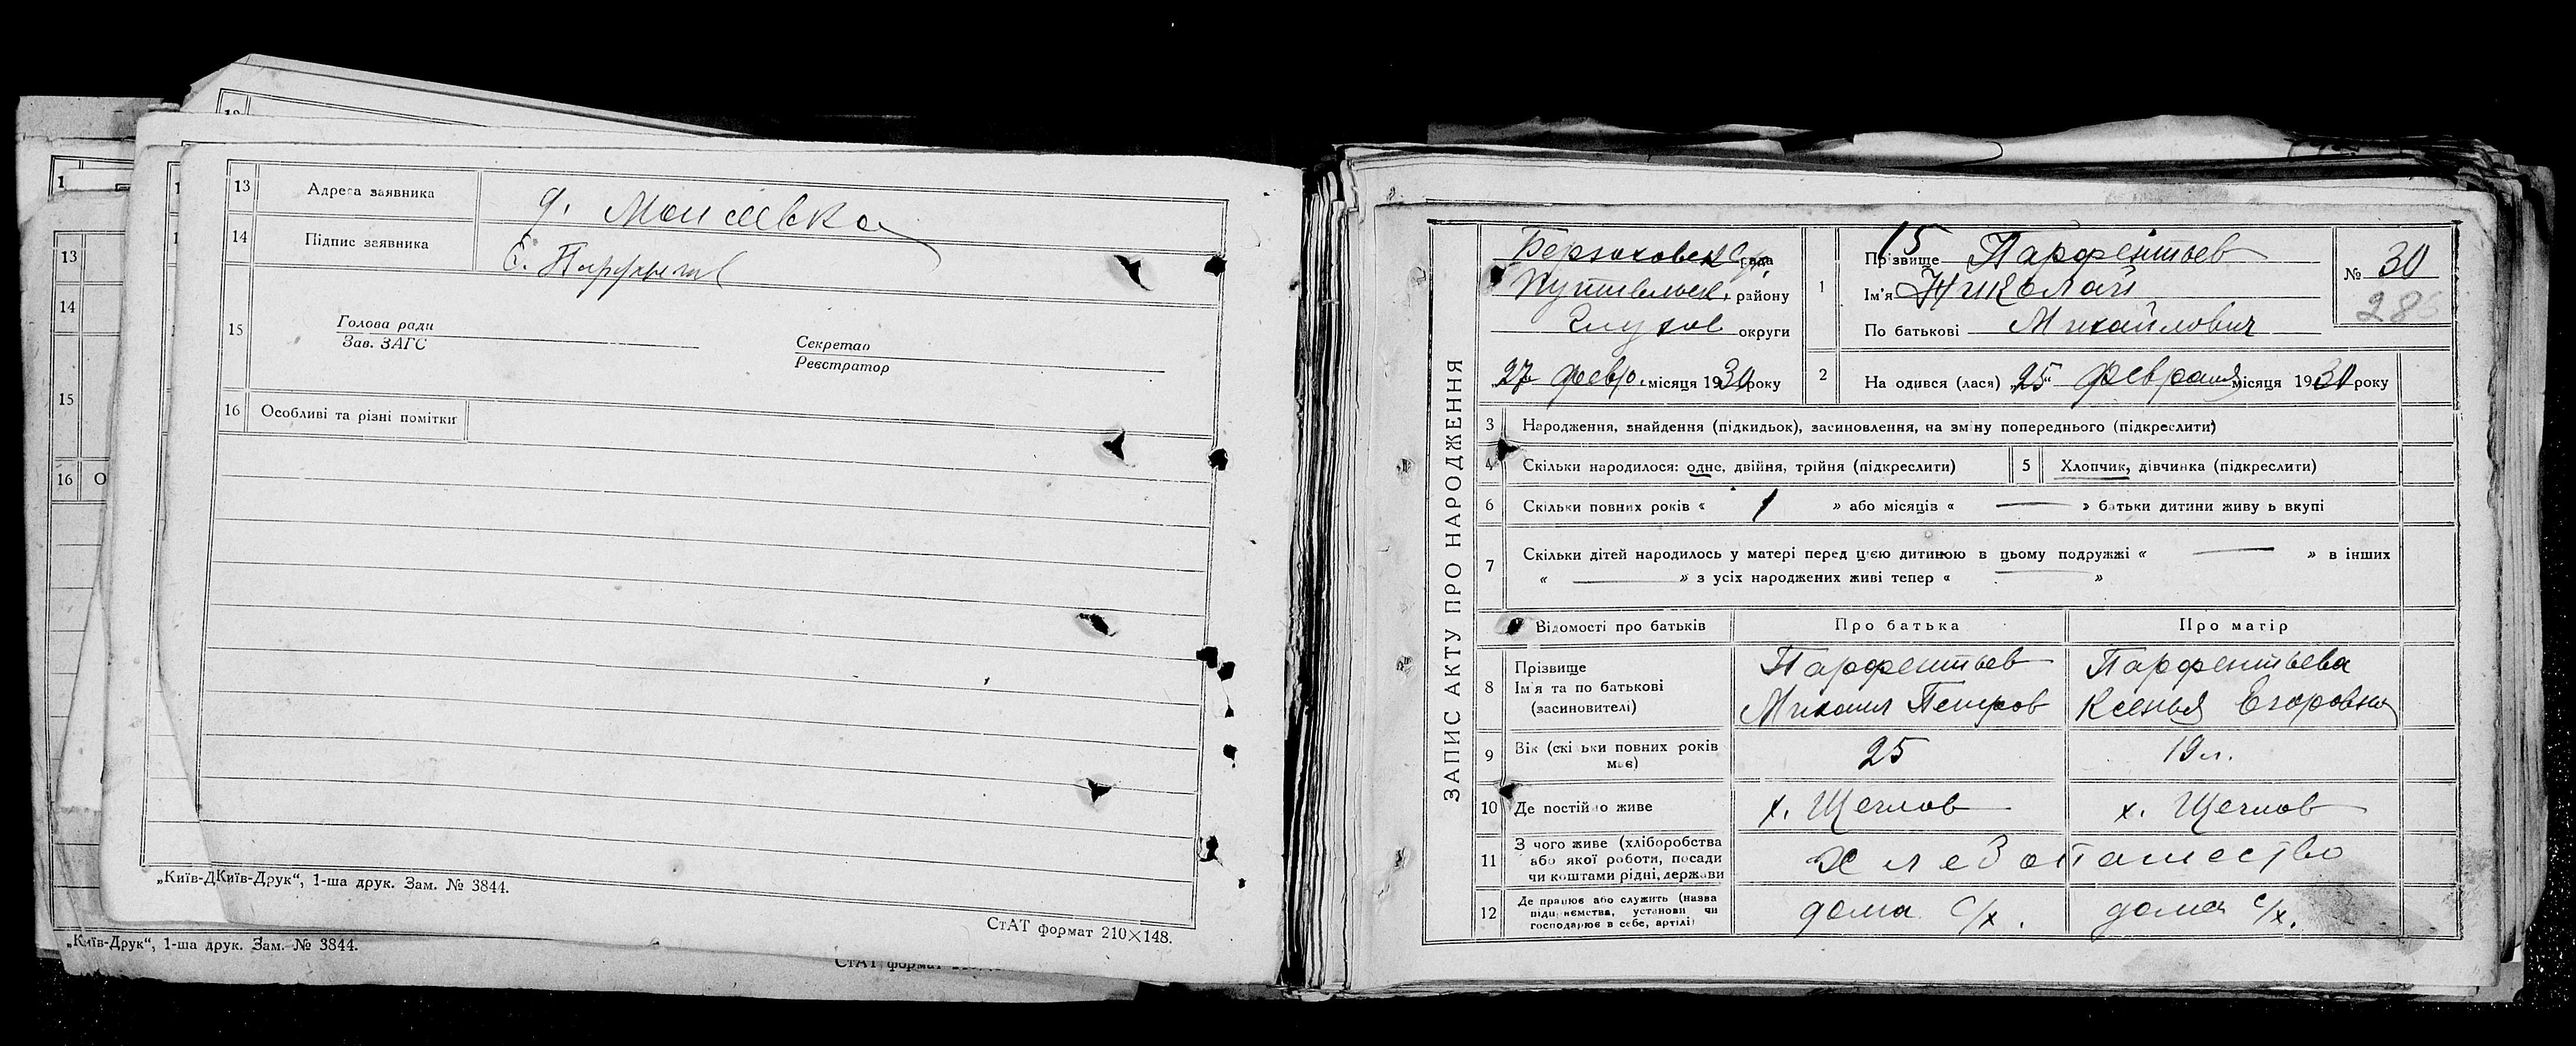 13 Адреса заявника д. Моисеевка
14 Підпис заявника
15 Голова ради
Зав. ЗАГС
Секретар
Реєстратор
16 Особливі та різні помітки
„Київ-ДКиїв-Друк“, 1-ша друк. Зам. № 3844.
СтАТ формат 210×148.
13
14
15
16 О
„Київ-Друк“, 1-ша друк. Зам. № 3844.
СтАТ формат
ЗАПИС АКТУ ПРО НАРОДЖЕННЯ
рада
Путивльск. району
Глухов округи
27 февр. місяця 1930 року
15
1 Прізвище Парфентьев
Ім'я Николай
По батькові Михайлович
№ 30
286
2 На одився (лася) „25“ февраля місяця 1930 року
3 Народження, знайдення (підкидьок), засиновлення, на зміну попереднього (підкреслити)
4 Скільки народилося: одне, двійня, трійня (підкреслити)
5 Хлопчик, дівчинка (підкреслити)
6 Скільки повних років « 1 » або місяців « — » батьки дитини живу ь вкупі
7 Скільки дітей народилось у матері перед цією дитиною в цьому подружжі « — » в інших
« — » з усіх народжених живі тепер « — »
Відомості про батьків Про батька Про матір
8 Прізвище Парфентьев Парфентьева
Ім'я та по батькові Михаил Петров Ксенья Егоровна
(засиновителі)
9 Вік (скі ьки повних років 25 19 л.
має)
10 Де постійно живе х. Щеглов х. Щеглов
11 З чого живе (хліборобства
або якої роботи, посади хлебопашество
чи коштами рідні, держави
12 Де працює або служить (назва
підприємства, установи чи дома с/х. дома с/х.
господарює в себе, артілі)